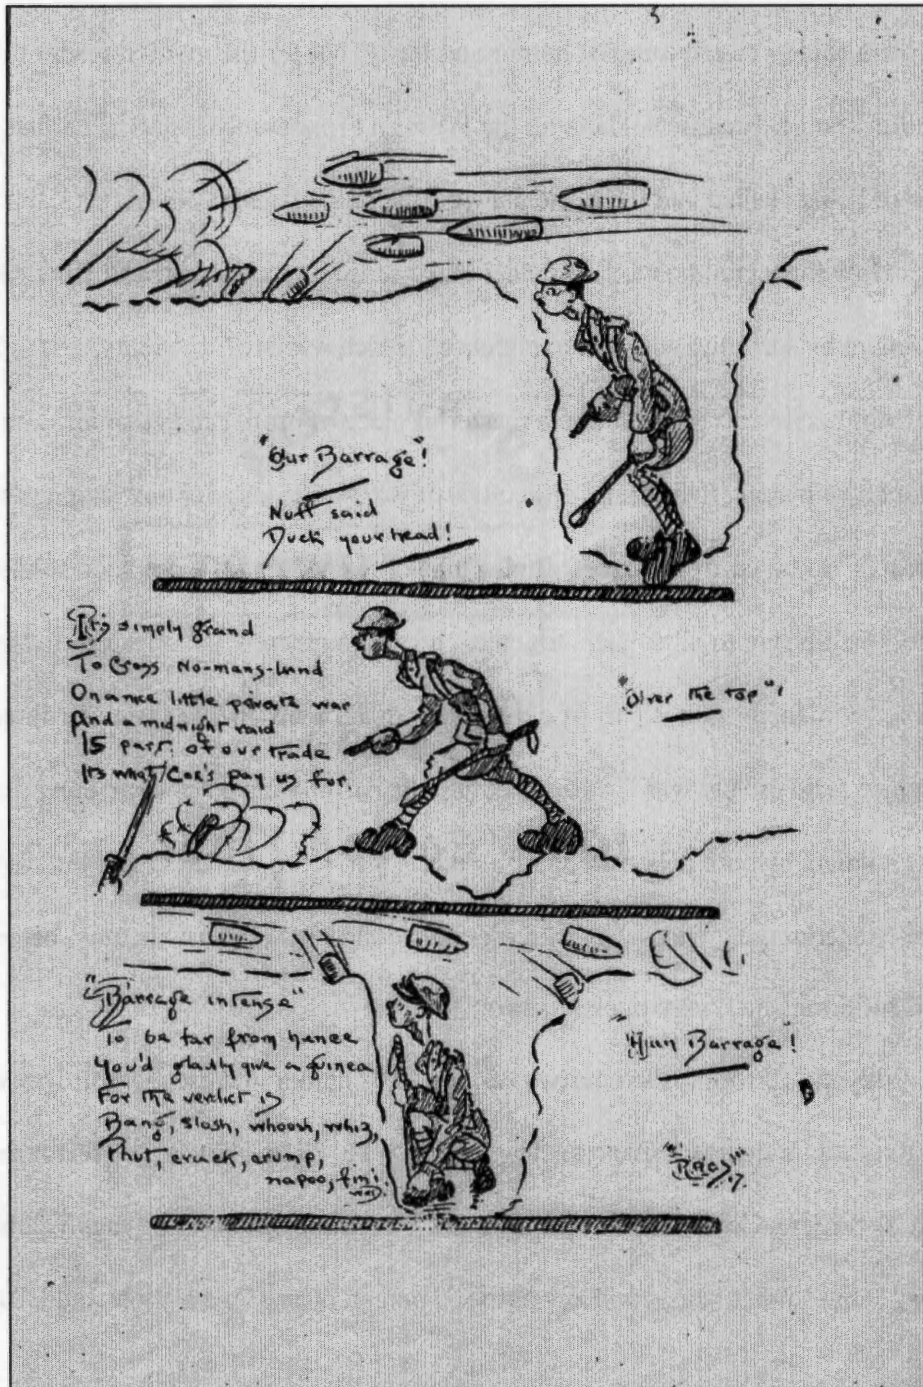 "Our Barrage"!
Nuff said
Duck your head!
It's simply grand
To Cross No-mans-land
On a nice little private war
And a midnight raid
Is part of our trade
Its what Cox's pay us for.
"Over the top"!
"Barrage intense"
To be far from hence
You'd gladly give a guinea
For the verdict is
Bang, slosh, whoosh, whiz,
Phut, crack, crump,
napoo, fini
"Hun Barrage"!
17.